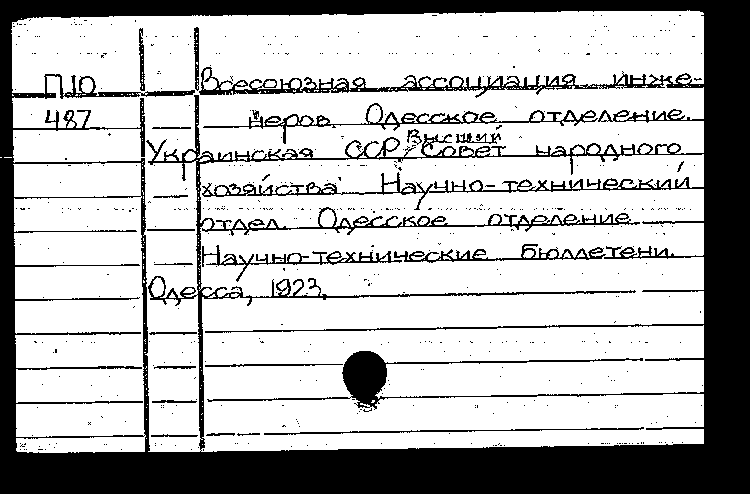 П10 Всесоюзная ассоциация инже-
487 неров. Одесское отделение.
Высший
Украинская ССР, Совет народного
хозяйства. Научно-технический
отдел. Одесское отделение
Научно-технические бюллетени.
Одесса, 1923.